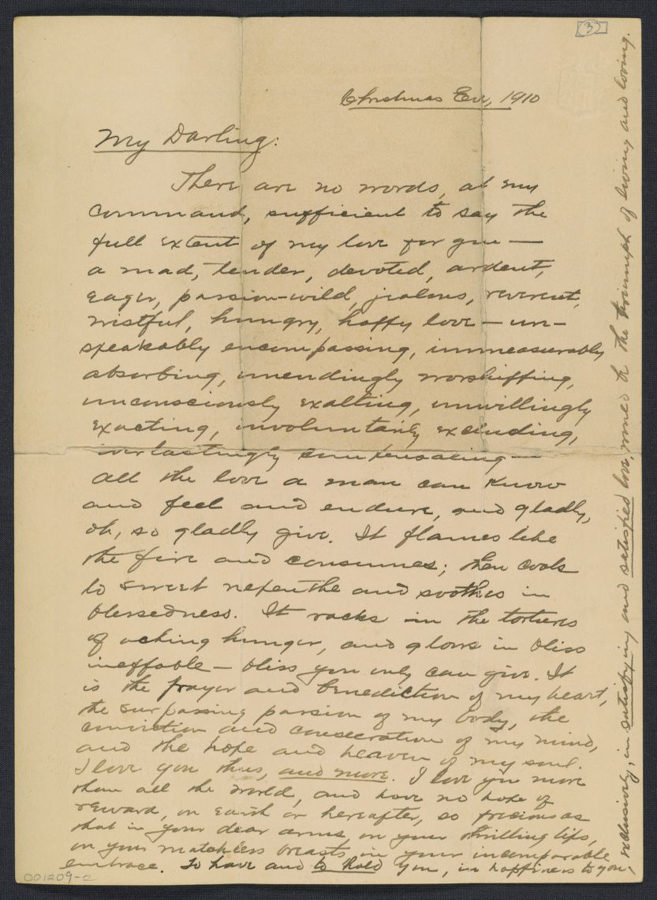 (3)
Christmas Eve, 1910
My Darling:
There are no words, at my
command, sufficient to say the
full extent of my love for you —
a mad, tender, devoted, ardent,
eager, passion-wild, jealous, reverent,
wistful, hungry, happy love — un-
speakably encompassing, immeasurably
absorbing, unendingly worshipping,
unconsciously exalting, unwillingly
exacting, involuntarily excluding,
everlastingly compensating —
all the love a man can know
and feel and endure, and gladly,
oh, so gladly give. It flames like
the fire and consumes; then cools
to sweet nepenthe and soothes in
blessedness. It racks in the tortures
of aching hunger, and glows in bliss
ineffable — bliss you only can give. It
is the prayer and benediction of my heart,
the surpassing passion of my body, the
conviction and consecration of my mind,
and the hope and heaven of my soul.
I love you thus, and more. I love you more
than all the world, and have no hope of
reward, on earth or hereafter, so precious as
that in your dear arms, on your thrilling lips,
on your matchless breasts, in your incomparable
embrace. To have and to hold you, in happiness to you,
exclusively, in satisfying and satisfied love, to the triumph of living and loving.
001209-c